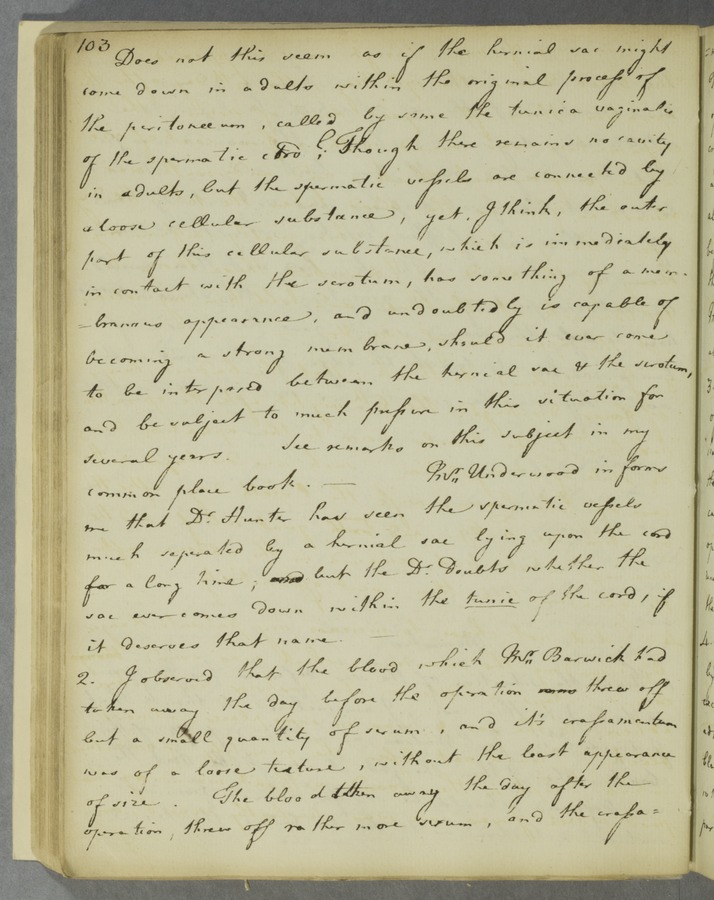 103
Does not this seem as if the hernial sac might
come down in adults within the original process of
the peritoneum, called by some the tunica vaginalis
of the spermatic cord; Though there remains no cavity
in adults, but the spermatic vessels are connected by
a loose cellular substance, yet, I think, the outer
part of this cellular substance, which is immediately
in contact with the scrotum, has something of a mem-
=branous appearance, and undoubtedly is capable of
becoming a strong membrane, should it ever come
to be interposed between the hernial sac & the scrotum,
and be subject to much pressure in this situation for
several years. See remarks on this subject in my
common place book. — Mr. Underwood informs
me that Dr. Hunter has seen the spermatic vessels
much seperated by a hernial sac lying upon the cord
for a long time; and but the Dr. Doubts whether the
sac ever comes down within the tunic of the cord, if
it deserves that name. —
2. I observed that the blood which Mr. Barwick had
taken away the day before the operation threw off
but a small quantity of serum, and it's crassamentum
was of a loose texture, without the least appearance
of size. The blood taken away the day after the
operation, threw off rather more serum, and the crassa=